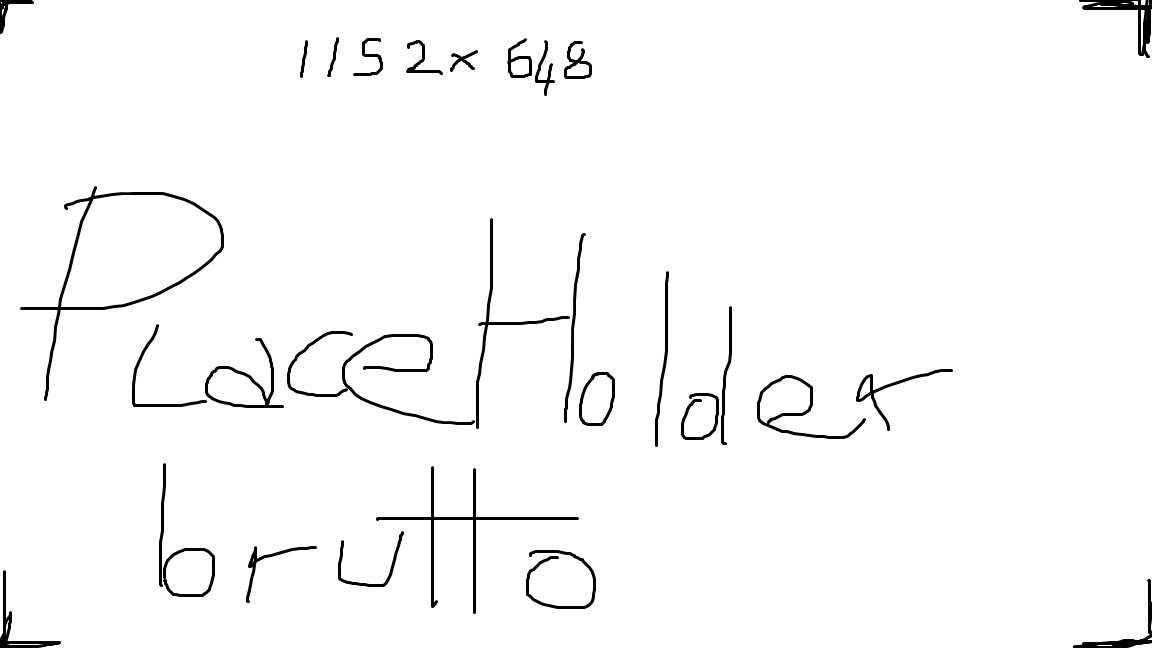 1152x648
PlaceHolder
brutto